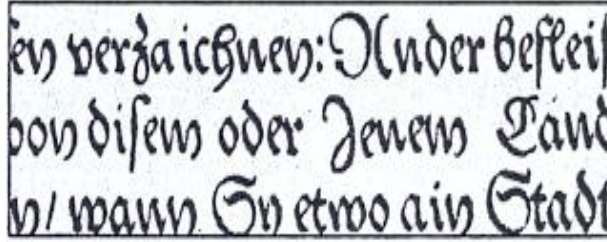 en verzaichnen: Ander befleiſ
von diſem oder Jenem Länd
n/ wann Sy etwo ain Stadt